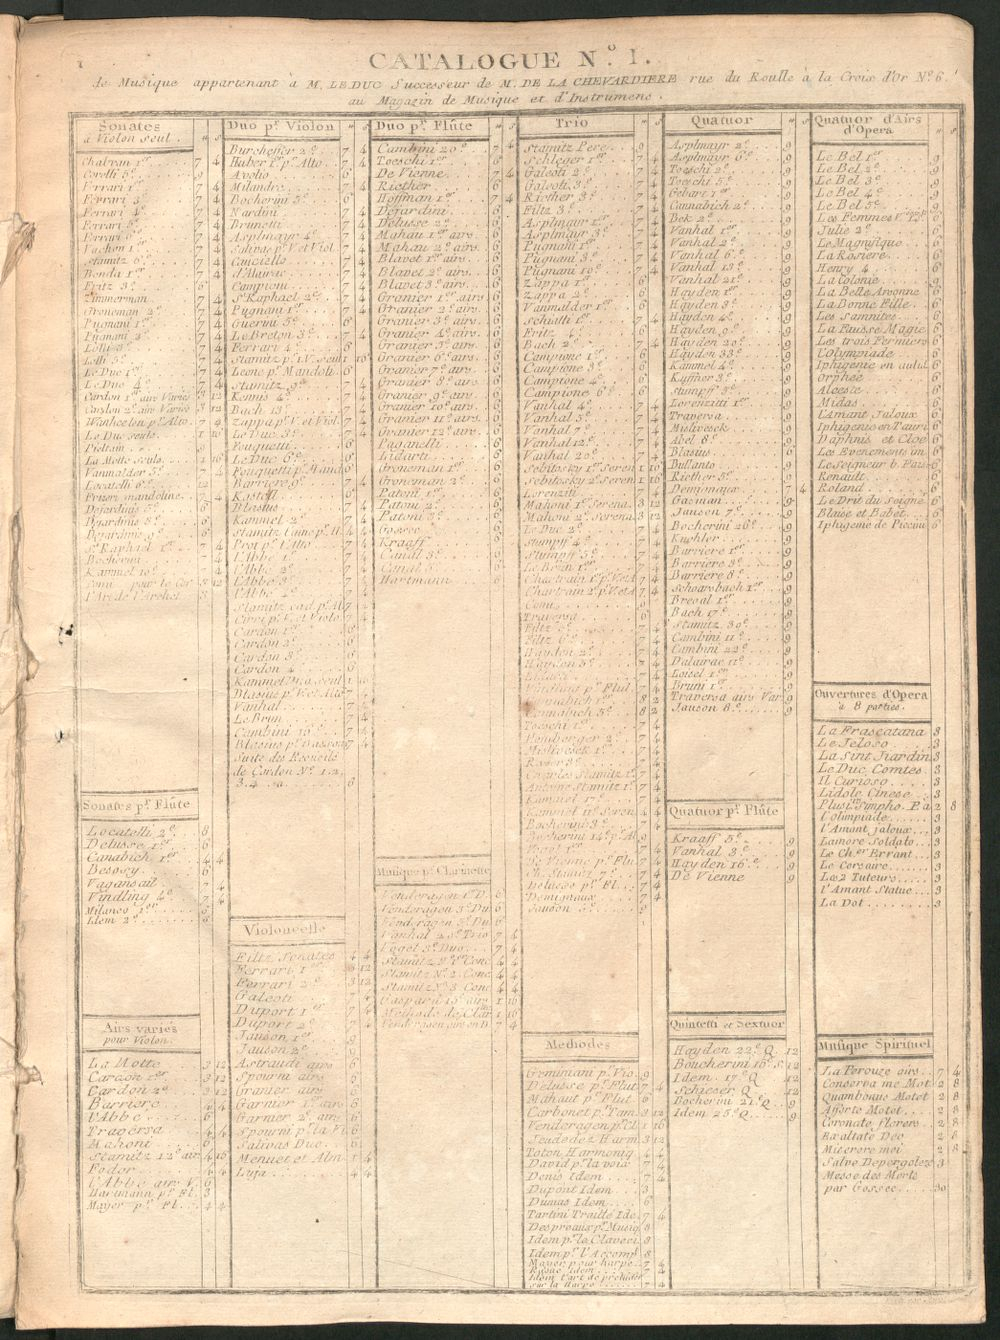 1
CATALOGUE N.º I.
de Musique appartenant à M. LE DUC Successeur de M. DE LA CHEVARDIERE rue du Roulle à la Croix d'Or Nº 6.
au Magazin de Musique et d'Instrumens.
Sonates
à Violon seul.
Chabran 1er 7 4
Corelli 5e 9
Ferrari 1er 7 4
Ferrari 3e 7 4
Ferrari 4e 7 4
Ferrari 5e 7 4
Ferrari 6e 7 4
Vachon 1er 7 4
Stamitz 6e 7 4
Benda 1er 7 4
Fritz 3e 6
Zimmerman 7 4
Groneman 2e 7 4
Pugnani 1er 7 4
Pugnani 2e 7 4
Lolli 3e 7 4
Lolli 5e 7 4
Le Duc 1er 7 4
Le Duc 4e 7 4
Cardon 1er airs Variés 3 12
Cardon 2e airs Variés 3 12
Wanhecton pr Alto 7 4
Le Duc seule 1 16
Pieltain 9
La Motte seule 1 16
Vanmalder 3e 7 4
Locatelli 6e 12
Prizeri mandoline 7 4
Dejardinis 5e 6
Dejardinis 8e 6
Dejardinis 9e 6
St Raphael 1er 7 4
Bocherini 7 4
Kammel 10e 7 4
l'Art de l'Archet 3
Sonates pr Flûte
Locatelli 2e 8
Delusse 1er 6
Canabich 1er 4 4
Besozy 6
Vagansail 7 4
Vindling 4e 7 4
Milanco 1er 6
Idem 2e 6
Airs variés
pour Violon.
La Motte 3 12
Cardon 1er 3 12
Cardon 2e 3 12
Barriere 4 4
l'Abbé 6
Traversa 4 4
Mahoni 6
Stamitz 12e air 4 16
Fodor 4 4
l'Abbé airs V. 6
Hartmann pr Fl. 3
Mayer pr Fl. 4 4
Duo pr Violon
Burcheffer 2e 7 4
Huber 1er pr Alto 7 4
Avolio 6
Milandre 7 4
Bocherini 5e 6
Nardini 7 4
Brunetti 7 4
Asplmayr 4e 7 4
Salivas pr V. et Viol. 7 4
Canciello 7 4
d'Alairac 7 4
Campioni 7 4
St Raphael 2e 7 4
Pugnani 1er 7 4
Guerini 5e 6
Le Breton 3e 7 4
Ferrari 4e 6
Stamitz pr 1 V. seul 1 16
Leone pr Mandoli. 6
Stamitz 9e 7 4
Kennis 4e 7 4
Bach 13e 7 4
Zappa pr V. et Viol. 7 4
Le Duc 3e 7 4
Fouquetti 6
Le Duc 6e 7 4
Fouquetti pr Mand 6
Barriere 9e 7 4
Kastell 6
Blasius 7 4
Kammel 2e 7 4
Stamitz 7 4
Proj pr l'Alto 7 4
l'Abbé 1er 7 4
l'Abbé 2e 7 4
l'Abbé 3e 7 4
l'Abbé 7 4
Stamitz cad. pr Al 7 4
Cirri pr V. et Violo 7 4
Cardon 1er 6
Cardon 2e 6
Cardon 3e 6
Cardon 4 6
Kammel 1 16
Blasius pr V. et Alto 7 4
Vanhal 7 4
Le Brun 7 4
Cambini 16e 7 4
Blasius pr Basson 7 4
Suite des Recueils
de Cardon Nº 1. 2.
3. 4. 8
Violoncelle
Filtz Sonates 4 4
Ferrari 1er 3 12
Ferrari 2e 3 12
Galeoti 7 4
Duport 1er 7 4
Duport 2e 7 4
Jauson 1er 9
Jauson 2e 9
Astraudi airs 6
Spourni airs 6
Granier airs 6
Garnier 1er airs 6
Garnier 2e airs 6
Spourni pr la Vi 6
Salivas Duo 6
Menuet et Alm 1 4
Luja 4 4
Duo pr Flûte
Cambini 20e 7 4
Toeschi 1er 6
De Vienne 7 4
Riether 6
Hoffman 1er 7 4
Dejardini 6
Delusse 2e 6
Mahau 1er airs 6
Mahau 2e airs 6
Blavet 1er airs 6
Blavet 2e airs 6
Blavet 3e airs 6
Granier 1er airs 6
Granier 2e airs 6
Granier 3e airs 6
Granier 4e airs 6
Granier 5e airs 6
Granier 6e airs 6
Granier 7e airs 6
Granier 8e airs 6
Granier 9e airs 6
Granier 10e airs 6
Granier 11e airs 6
Granier 12e airs 6
Paganelli 6
Lidarti 6
Groneman 1er 6
Groneman 2e 6
Patoni 1er 6
Patoni 2e 6
Patoni 3e 6
Gossec 6
Kraaff 6
Canal 3e 6
Canal 5e 6
Hartmann 6
Musique pr Clarinette
Vonderagen 1er D. 6
Vonderagen 3e Du 6
Vonderagen 5e Du 6
Vanhal 20e Trio 7 4
Vogel 3e Duo 7 4
Stamitz Conc 4 4
Stamitz Nº 2 Conc 4 4
Stamitz Nº 3 Conc 4 4
Gasparo 15e airs 1 16
Methode de Clar 1 16
Venderagen airs en D. 7 4
Trio
Stamitz Perg 9
Schleger 1er 7 4
Galeoti 2e 7 4
Galeoti 3e 7 4
Riether 3e 7 4
Filtz 3e 7 4
Asplmayr 1er 7 4
Asplmayr 3e 7 4
Pugnani 1er 7 4
Pugnani 3e 7 4
Pugnani 10e 7 4
Zappa 1er 6
Zappa 2e 6
Vanmalder 1er 6
Schiatti 1er 7 4
Fritz 4e 6
Bach 2e 7 4
Campione 1er 6
Campione 3e 6
Campione 4e 6
Campione 6e 6
Vanhal 4e 7 4
Vanhal 5e 7 4
Vanhal 7e 7 4
Vanhal 12e 7 4
Vanhal 20e 7 4
Sebitosky 1er Seren 1 16
Sebitosky 2e Seren 1 16
Lorenziti 7 4
Mahoni 1er Serena 3 12
Mahoni 2e Serena 3 12
Le Duc 2e 7 4
Stumpff 4e 7 4
Stumpff 5e 7 4
Le Brun 1er 7 4
Chartrain 1er pr V. et A 7 4
Chartrain 2e pr V. et A 7 4
Conu 9
Traversa 6
Filtz 5e 7 4
Filtz 6e 7 4
Hayden 2e 7 4
Hayden 5e 7 4
Vindling pr Flut 7 4
Cannabich 1er 8 2
Cannabich 5e 8 2
Toeschi 1er 7 4
Honborger 2e 7 4
Misliwecek 1er 7 4
Charles Stamitz 1er 7 4
Antoine Stamitz 1er 7 4
Kammel 1er 7 4
Kammel 11e Seren 4 4
Bocherini 3e 7 4
Bocherini 14e pr Al 9
Vogel 1er 7 4
De Vienne pr Flu 7 4
Ch. Stamitz 7e 7 4
Delusse pr Fl. 7 4
Demignaux 7 4
Jauson 9
Methodes
Geminiani pr Vio. 9
Delusse pr Flut 7 4
Mahaut pr Flut. 6
Carbonet pr Tam. 3 12
Venderagen pr Cl 1 16
Jeu de dez Harm 3 12
Toton Harmoniq 4 4
David pr la voix 7 4
Denis Idem 7 4
Dupont Idem 3
Dumas Idem 6
Tartini Traitté Ide. 7 4
Despreaux pr Musiq 8
Idem pr le Claveci 9
Idem pr l'Accomp 8
Mayer pour harpe 7 4
Ragué Idem 7 4
Idem l'art de preluder
sur la Harpe 7 4
Quatuor
Asplmayr 2e 9
Asplmayr 6e 9
Toeschi 2e 9
Toeschi 5e 9
Gehari 1er 9
Cannabich 2e 9
Bek 2e 9
Vanhal 1er 9
Vanhal 2e 9
Vanhal 6e 9
Vanhal 13e 9
Vanhal 21e 9
Hayden 1er 9
Hayden 3e 9
Hayden 4e 9
Hayden 9e 9
Hayden 20e 9
Hayden 33e 9
Kammel 4e 9
Kuffner 3e 9
Stumpff 3e 9
Lorenzitti 1er 9
Traversa 9
Misliwesek 9
Abel 8e 9
Blasius 6
Bullanto 9
Riether 5e 9
Demignaux 7 4
Gasman 9
Janson 7e 9
Bocherini 26e 9
Kuchler 9
Barriere 1er 9
Barriere 3e 9
Barriere 8e 9
Schoarsbach 1er 9
Breval 1er 9
Bach 17e 9
Stamitz 30e 9
Cambini 11e 9
Cambini 22e 9
Dalairac 11e 9
Loisel 1er 9
Bruni 1er 9
Traversa airs Var. 9
Janson 8e 9
Quatuor pr Flûte
Kraaff 5e 9
Vanhal 3e 9
Hayden 16e 9
De Vienne 9
Quintetti et Sextuor
Hayden 22e Q. 12
Boucherini 16e S. 12
Idem 17e Q. 12
Schieser Q. 12
Bocherini 21e Q. 9
Idem 25e Q. 9
Quatuor d'Airs
d'Opera
Le Bel 1er 9
Le Bel 2e 9
Le Bel 3e 9
Le Bel 4e 9
Le Bel 5e 9
Les Femmes Vengées 6
Julie 2e 6
Le Magnifique 6
La Rosiere 6
Henry 4 6
La Colonie 6
La Belle Arsenne 6
La Bonne Fille 6
Les Samnites 6
La Fausse Magie 6
Les trois Fermiers 6
l'Olympiade 6
Iphigenie en aulid. 6
Orphée 6
Alceste 6
Midas 6
l'Amant Jaloux 6
Iphigenie en Tauri 6
Daphnis et Cloe 6
Les Evenements im 6
Le Seigneur b. faisa 6
Renault 6
Roland 6
Le Drit du Seigne 6
Blaise et Babet 6
Iphigenie de Piccini 6
Ouvertures d'Opera
à 8 parties.
La Frascatana 3
Le Jeloso 3
La Sint Jiardin 3
Le Duc Comtes. 3
Il Curioso 3
L'idole Cinese 3
Plusirs Simpho. P. à 2 8
l'Olimpiade 3
l'Amant jaloux 3
Lamore Soldato 3
Le Cher Errant 3
Le Corsaire 3
Les 2 Tuteurs 3
l'Amant Statue 3
La Dot 3
Musique Spirituel
La Perouze oirs 7 4
Conserva me Mot 2 8
Quambonus Motet 2 8
Afforte Motet 2 8
Coronate florers 2 8
Exaltate Deo 2 8
Miserere mei 2 8
Salve Depergoleze 3
Messe des Morts
par Gossec 30